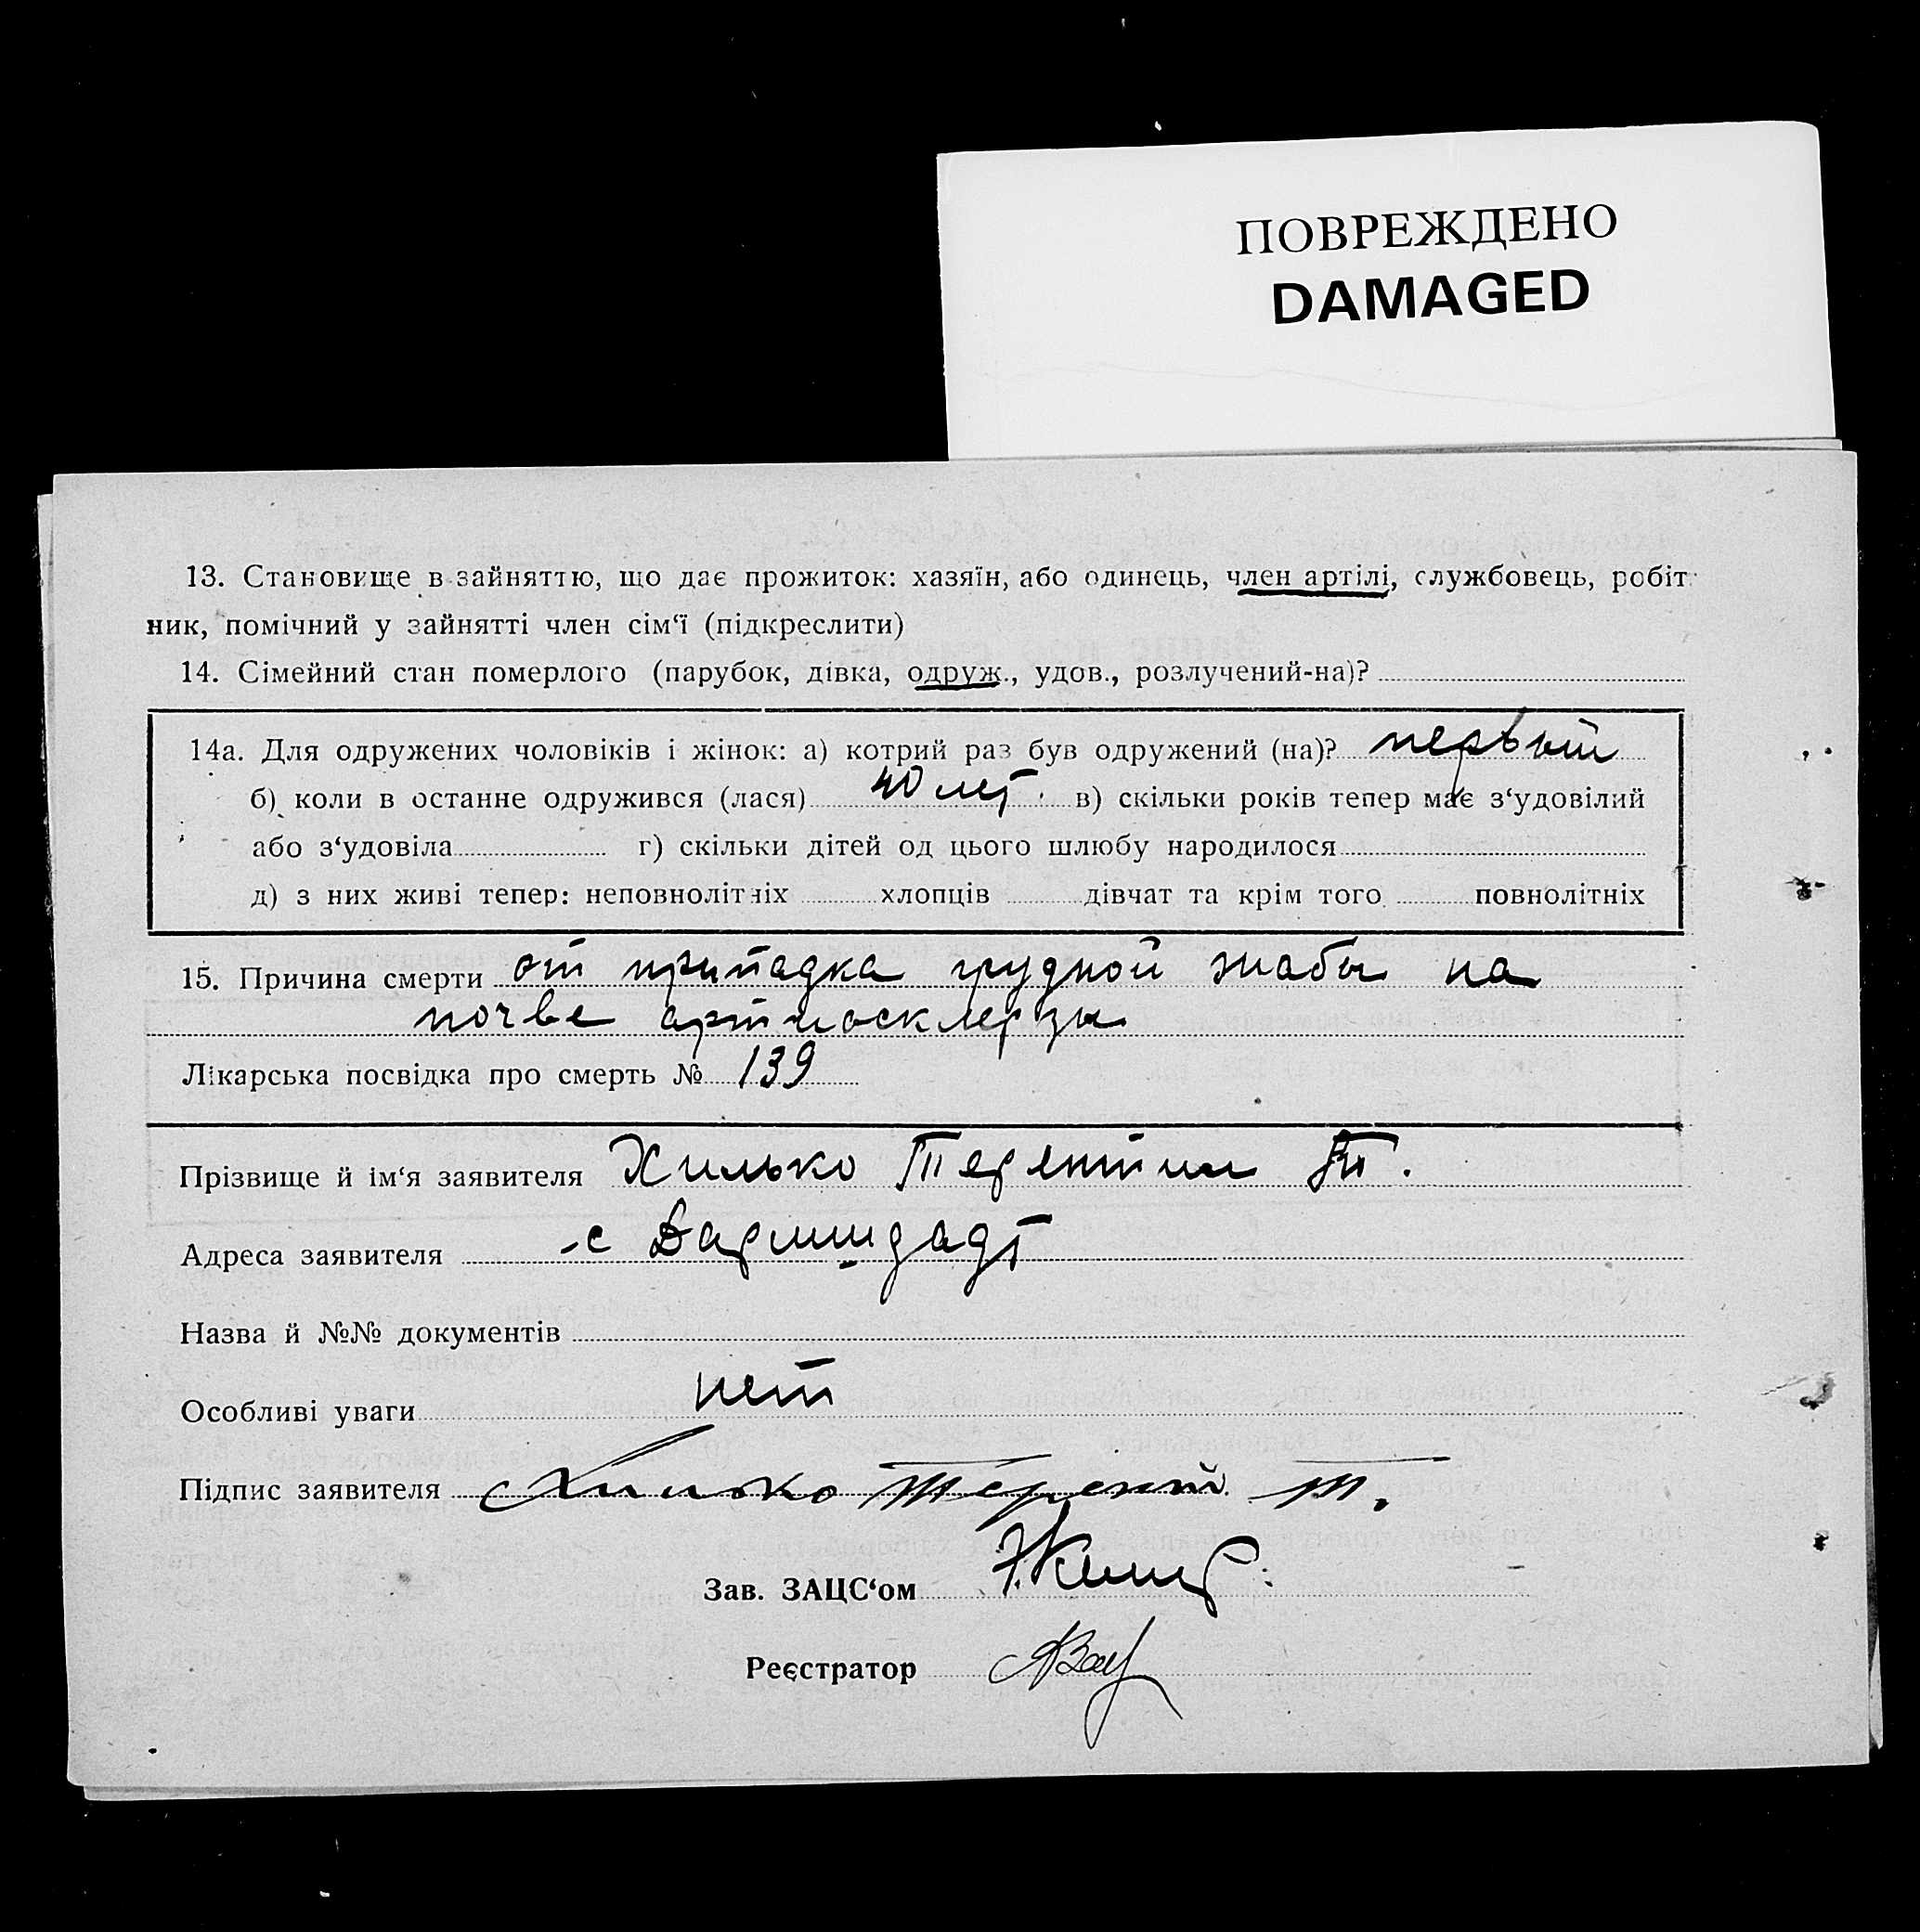 ПОВРЕЖДЕНО
DAMAGED
13. Становище в зайняттю, що дає прожиток: хазяїн, або одинець, член артілі, службовець, робіт
ник, помічний у зайнятті член сім‘ї (підкреслити)
14. Сімейний стан померлого (парубок, дівка, одруж., удов., розлучений-на)?
14а. Для одружених чоловіків і жінок: а) котрий раз був одружений (на)? первый
б) коли в останне одружився (лася) 40 лет. в) скільки років тепер має з‘удовілий
або з‘удовіла г) скільки дітей од цього шлюбу народилося
д) з них живі тепер: неповнолітніх хлопців дівчат та крім того повнолітніх
15. Причина смерти от припадка грудной жабы на
почве
Лікарська посвідка про смерть № 139
Прізвище й ім‘я заявителя Хилько Терентии Т.
Адреса заявителя с Дармштадт
Назва й №№ документів
Особливі уваги нет
Підпис заявителя Хилько Терентий Т.
Зав. ЗАЦС‘ом
Реєстратор